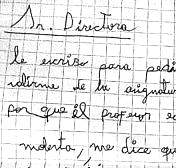 Sr. Directora
le escribo para pedi
idirme de la asignatur
por que él profesor es
molesto, me dice qu